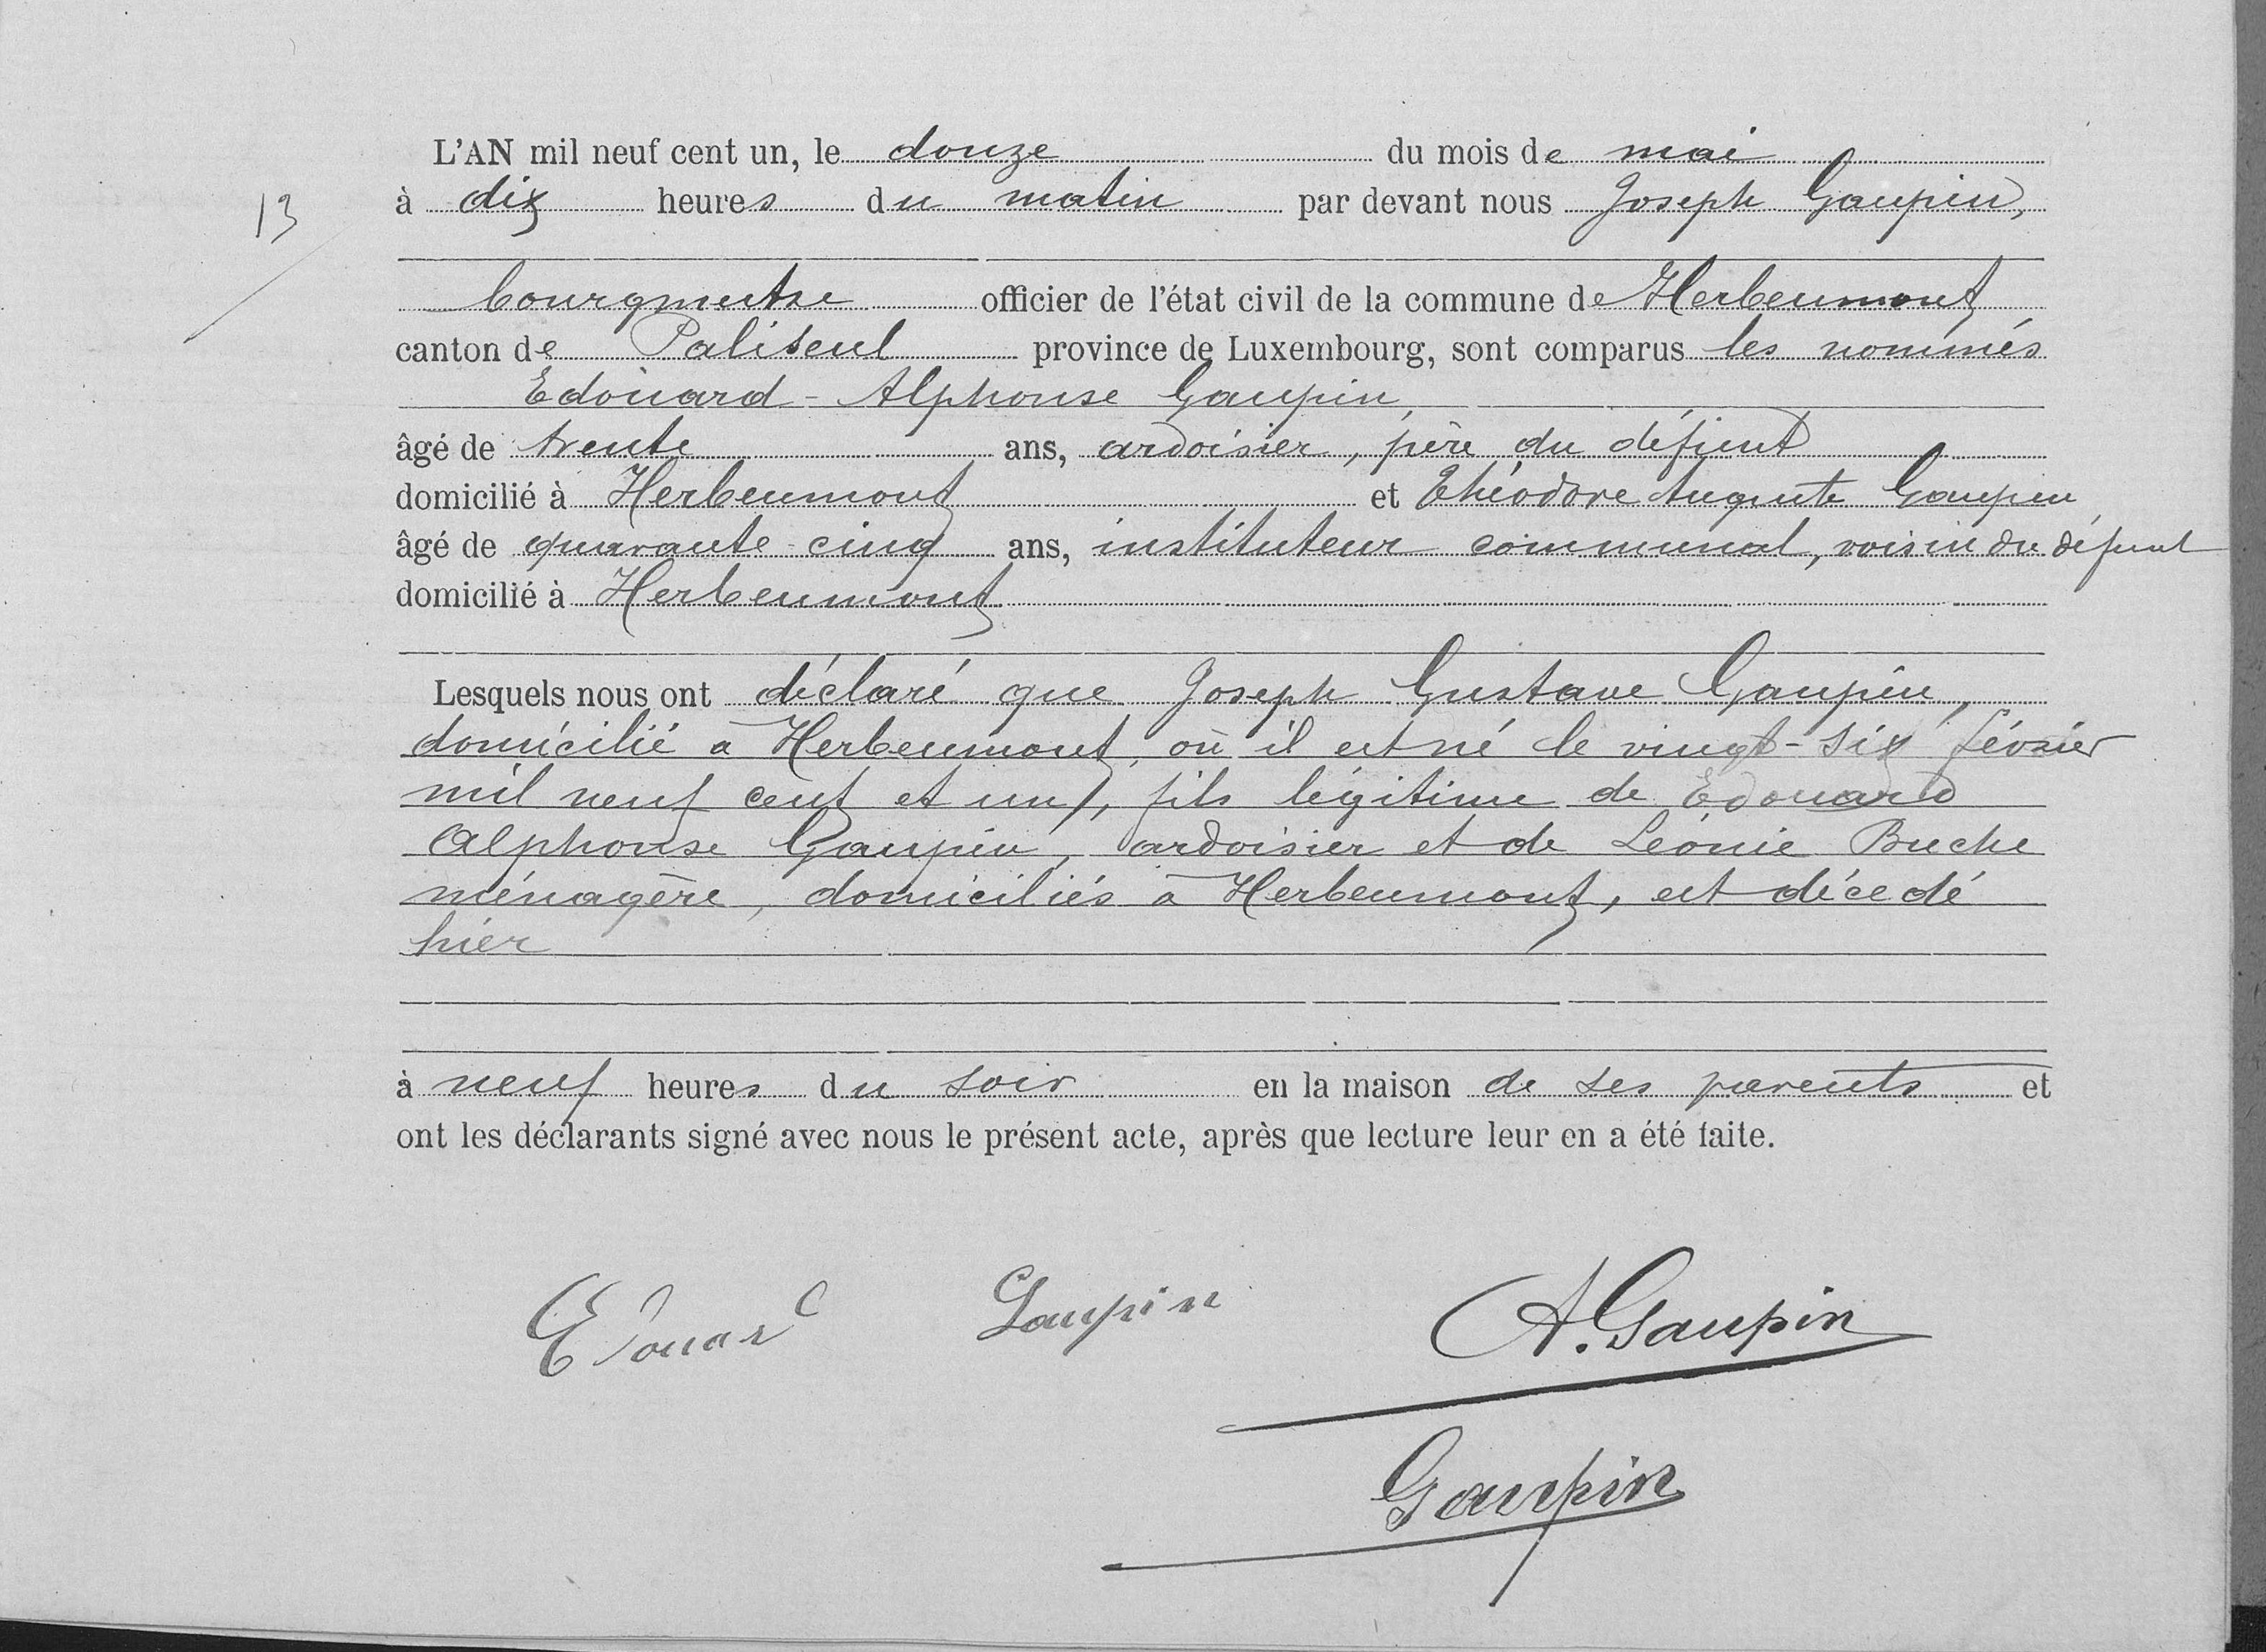 L'AN mil neuf cent un, le douze du mois de mai
13
à dix heures du matin par devant nous Joseph Gaupin,
bourgmestre officier de l'état civil de la commune de Herbeumont
canton de Paliseul province de Luxembourg, sont comparus les nommés
Edouard-Alphonse Gaupin,
âgé de trente ans, ardoisier, père du défunt
domicilié à Herbeumont et Théodore Auguste Gaupin,
âgé de quarante-cinq ans, instituteur communal, voisin du défunt
domicilié à Herbeumont
Lesquels nous ont déclaré que Joseph Gustave Gaupin,
domicilié à Herbeumont, où il est né le vingt-six février
mil neuf cent et un, fils légitime de Edouard
Alphonse Gaupin, ardoisier et de Léonie Buche
ménagère, domiciliés à Herbeumont, est décédé
hier
à neuf heures du soir en la maison de ses parents et
ont les déclarants signé avec nous le présent acte, après que lecture leur en a été faite.
Edouard Gaupin A. Gaupin
Gaupin